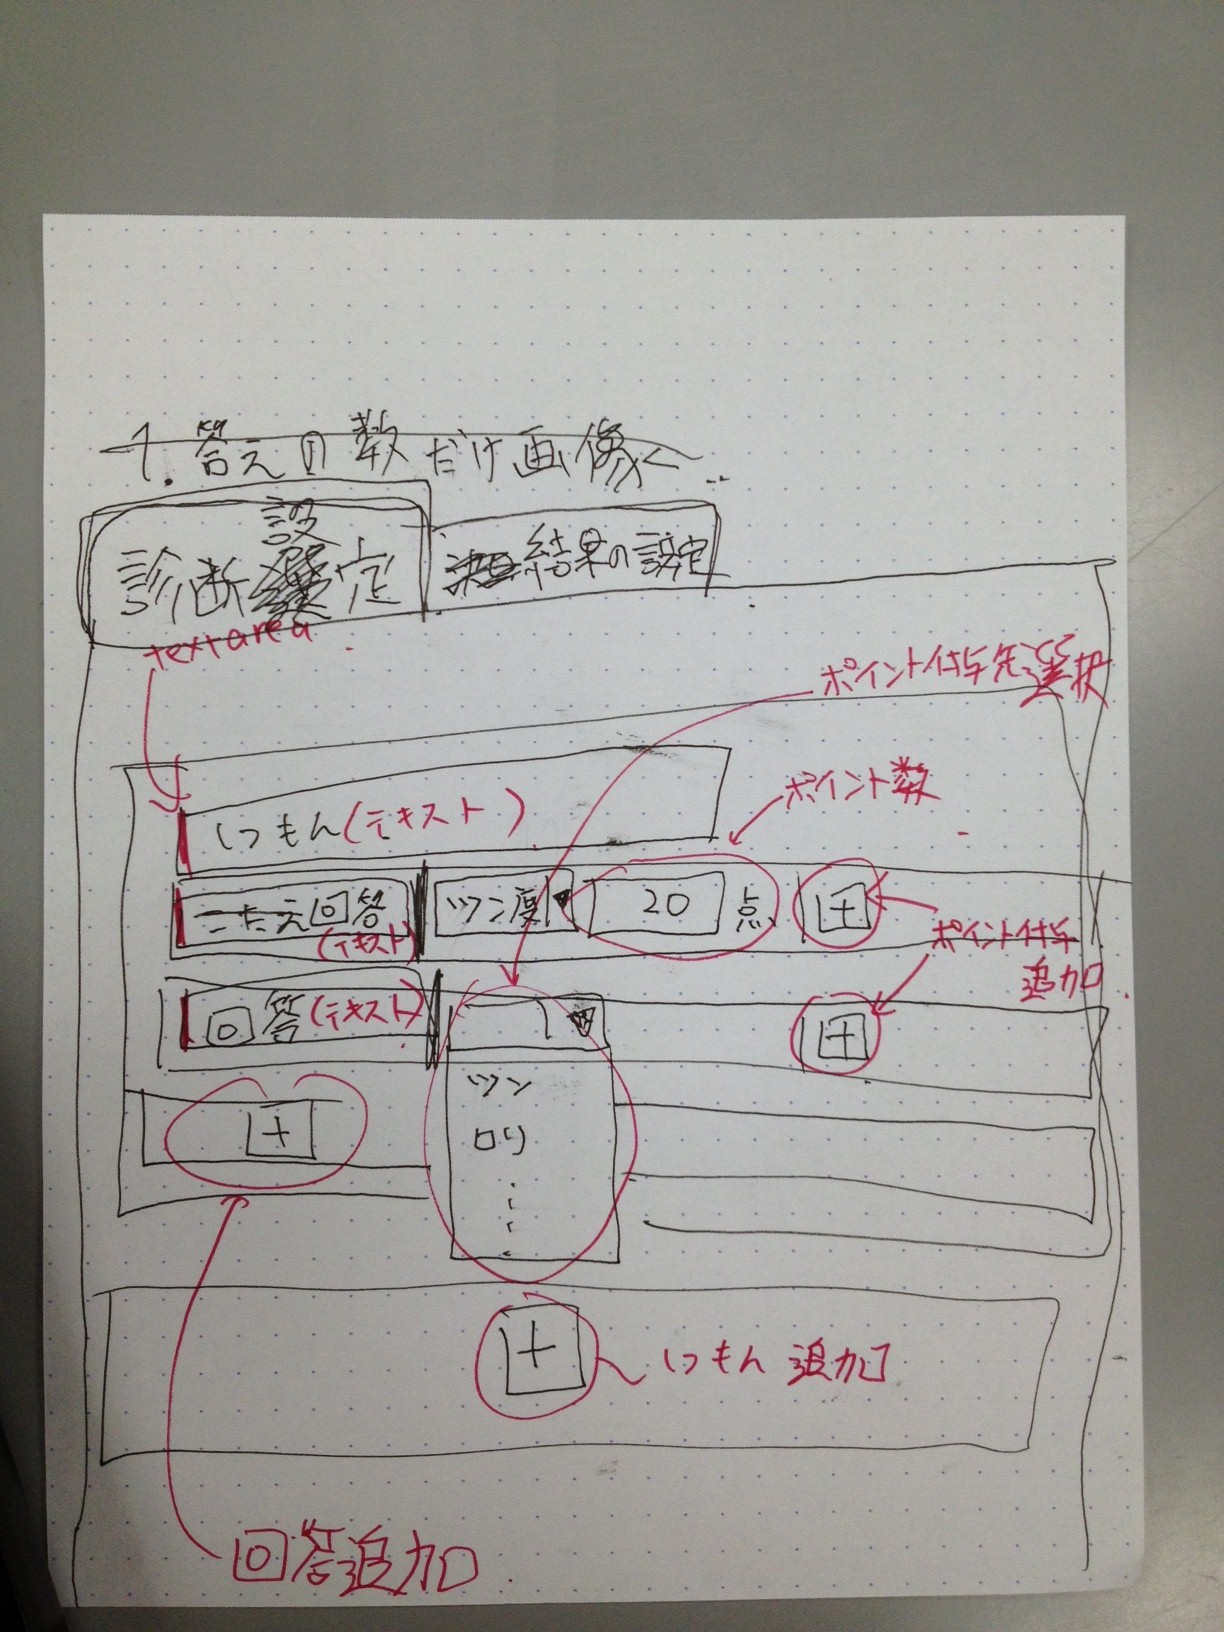 1. 答えの数だけ画像く
診断設定
結果の設定
textarea
ポイント付与先選択
ポイント数
しつもん(テキスト)
こたえ回答 ツン度▼ 20 点 +
(テキスト)
ポイント付与
追加
回答(テキスト) ▼ +
ツン
ロリ
+
+ しつもん 追加
回答追加